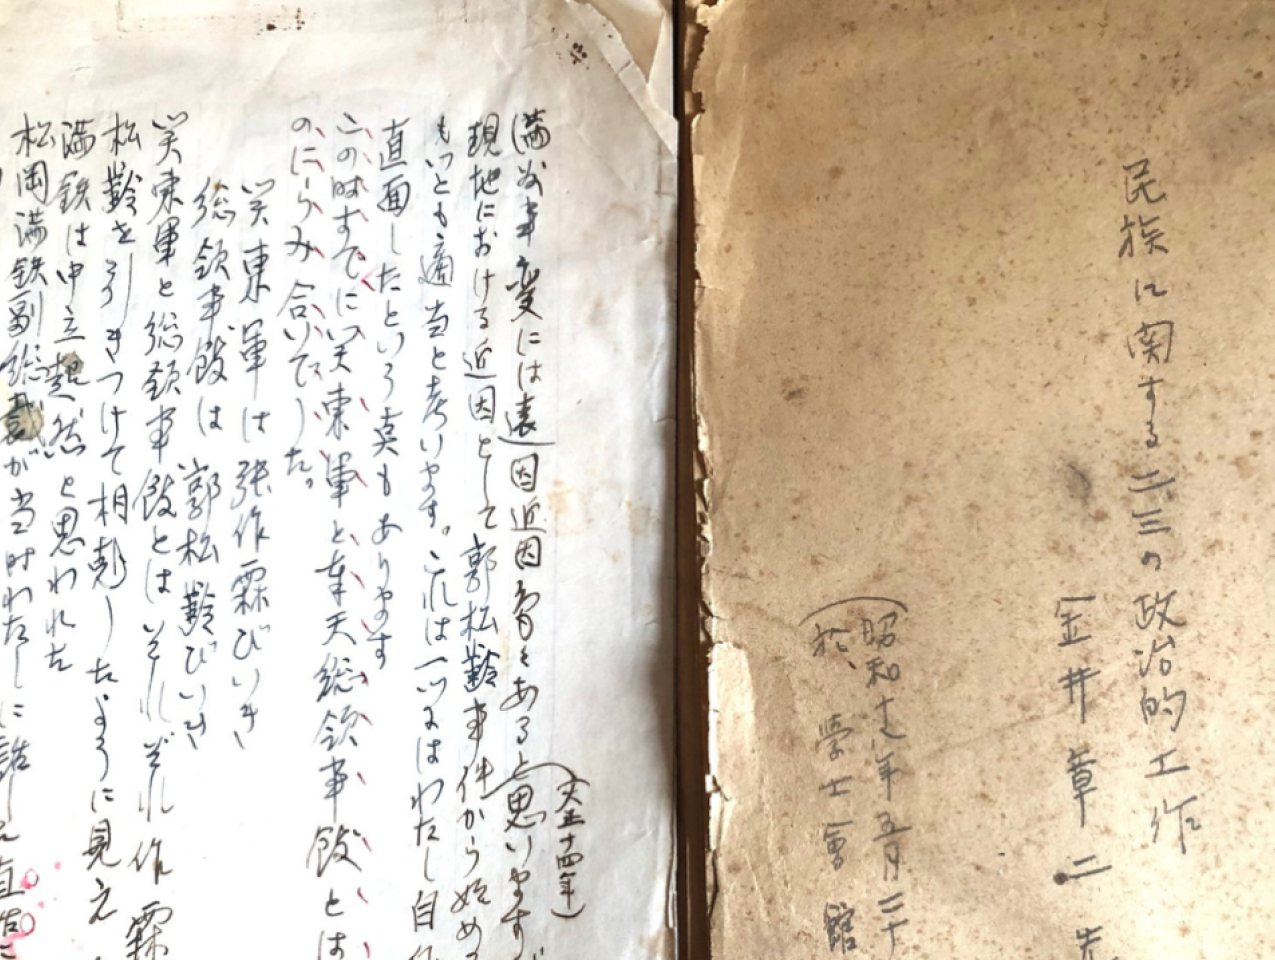 民族に関する二、三の政治的工作
金井章二先
（昭和十七年五月二十
於、學士會館
（大正十四年）
満洲事変には遠因近因多々あると思いますが
現地における近因として郭松齢事件から始める
もっとも適当と考います。これは一つにはわたし自
直面したという点もあります
この時すでに関東軍と奉天総領事館とは
のにらみ合いでした。
関東軍は張作霖びいき
総領事館は郭松齢びいき
関東軍と総領事館とはそれぞれ作霖
松齢を引きつけて相剋したように見え
満鉄は中立超然と思われた
松岡満鉄副総裁が当時わたしに話し